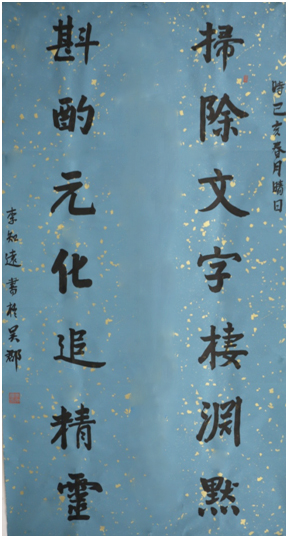 時己亥春月晴日
掃除文字棲淵默
斟酌元化追精靈
宋知遠書於吳郡